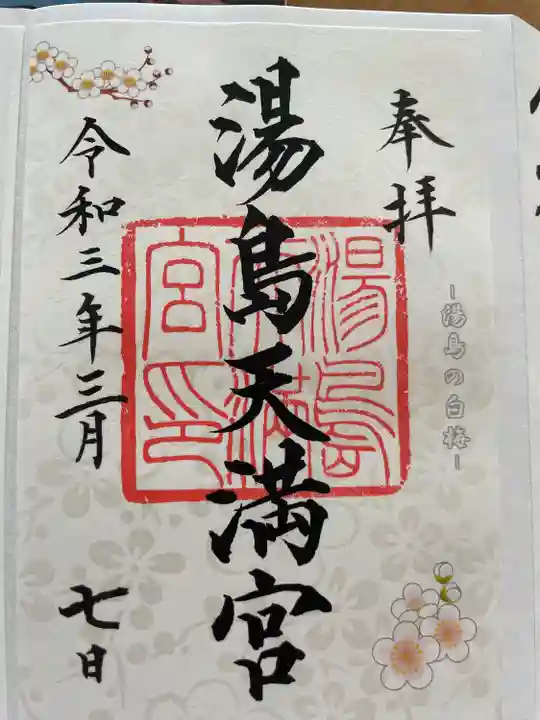 奉拝
－湯島の白梅－
湯島天満宮
湯島天満宮印
令和三年三月
七日